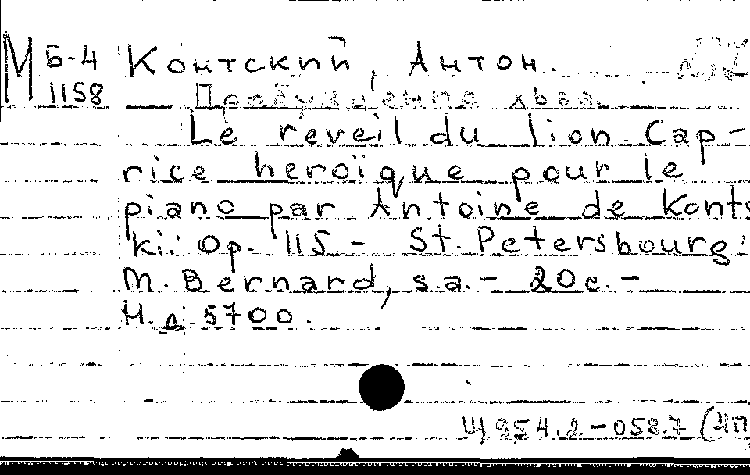 М Б-4 Контский, Антон.
1158 Пробуждение льва.
Le reveil du lion Cap-
rice heroïque pour le
piano par Antoine de Konts
ki. Op. 115 - St. Petersbourg:
M. Bernard, s.a. - 20 с. -
Н.д. 5700.
Щ 954.2-058.7 (ЧП